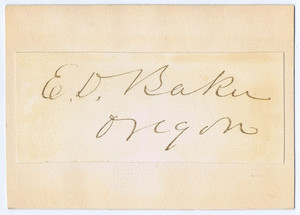 E.D. Baker
Oregon